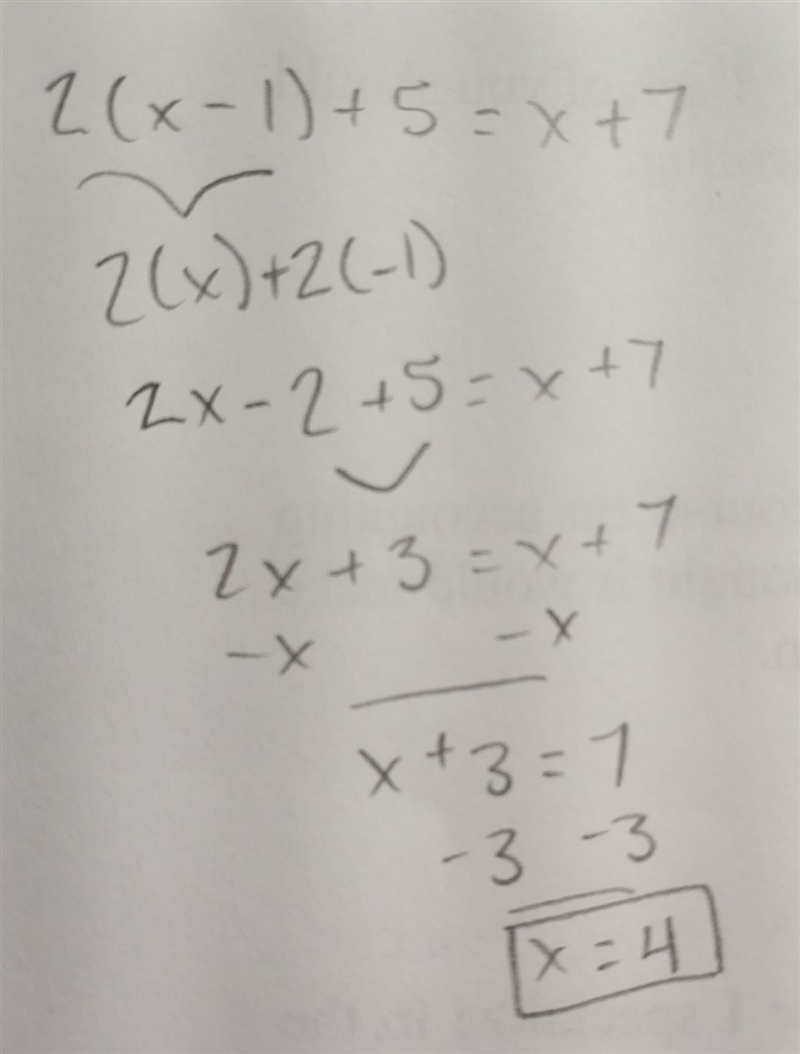 2(x - 1) + 5 = x + 7
2(x) + 2(-1)
2x - 2 + 5 = x + 7
2x + 3 = x + 7
-x -x
x + 3 = 7
-3 -3
x = 4